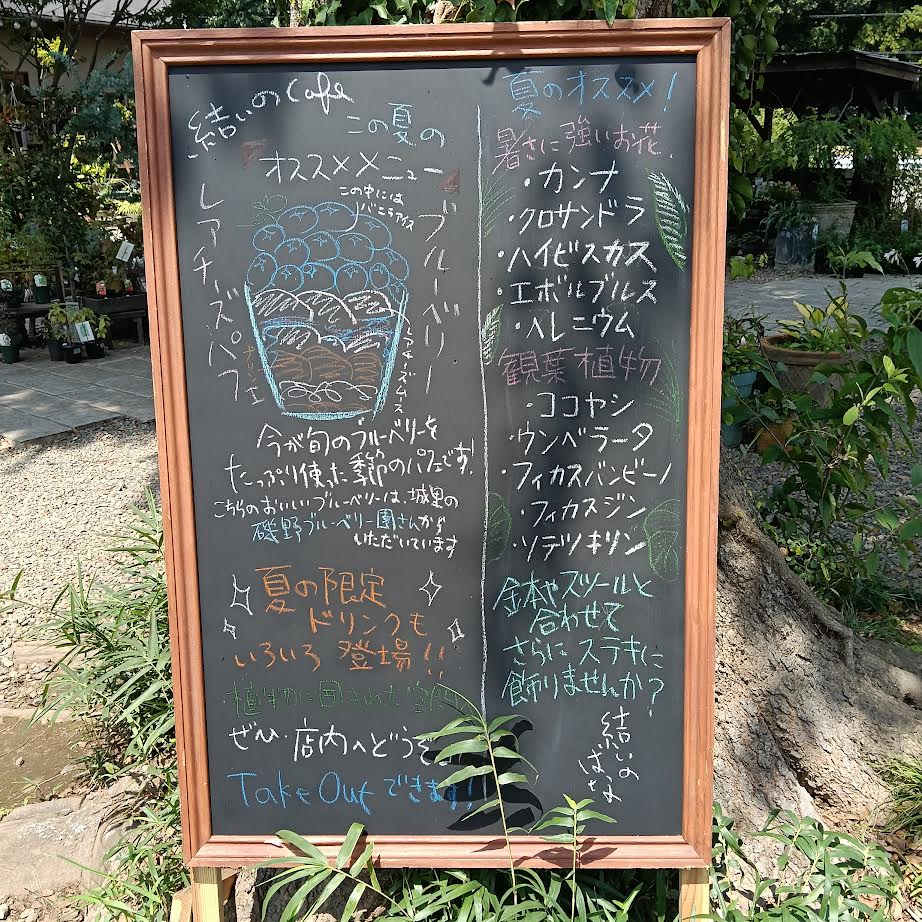 結いのcafe
この夏の
オススメメニュー
ブルーベリー
レアチーズパフェ
この中には
バニラアイス
レアチーズムース
今が旬のブルーベリーを
たっぷり使った季節のパフェです!
こちらのおいしいブルーベリーは、城里の
磯野ブルーベリー園さんから
いただいています
夏の限定
ドリンクも
いろいろ登場!!
植物に囲まれた空間
ぜひ店内へどうぞ
Take Outできます!!
夏のオススメ!
暑さに強いお花
・カンナ
・クロサンドラ
・ハイビスカス
・エボルブルス
・ヘレニウム
観葉植物
・ココヤシ
・ウンベラータ
・フィカスバンビーノ
・フィカスジン
・ソテツキリン
金本やスツールと
合わせて
さらにステキに
飾りませんか?
結いの
はな